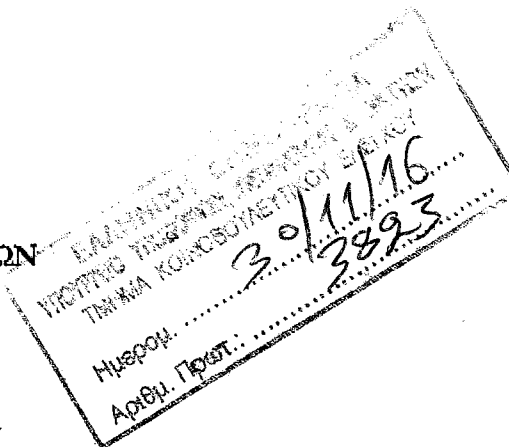 ΩΝ
ΥΠΟΥΡΓΕΙΟ
ΤΜΗΜΑ ΚΟΙΝΟΒΟΥΛΕΥΤΙΚΟΥ ΕΛΕΓΧΟΥ
Ημερομ. 30/11/16
Αριθμ. Πρωτ.: 3823